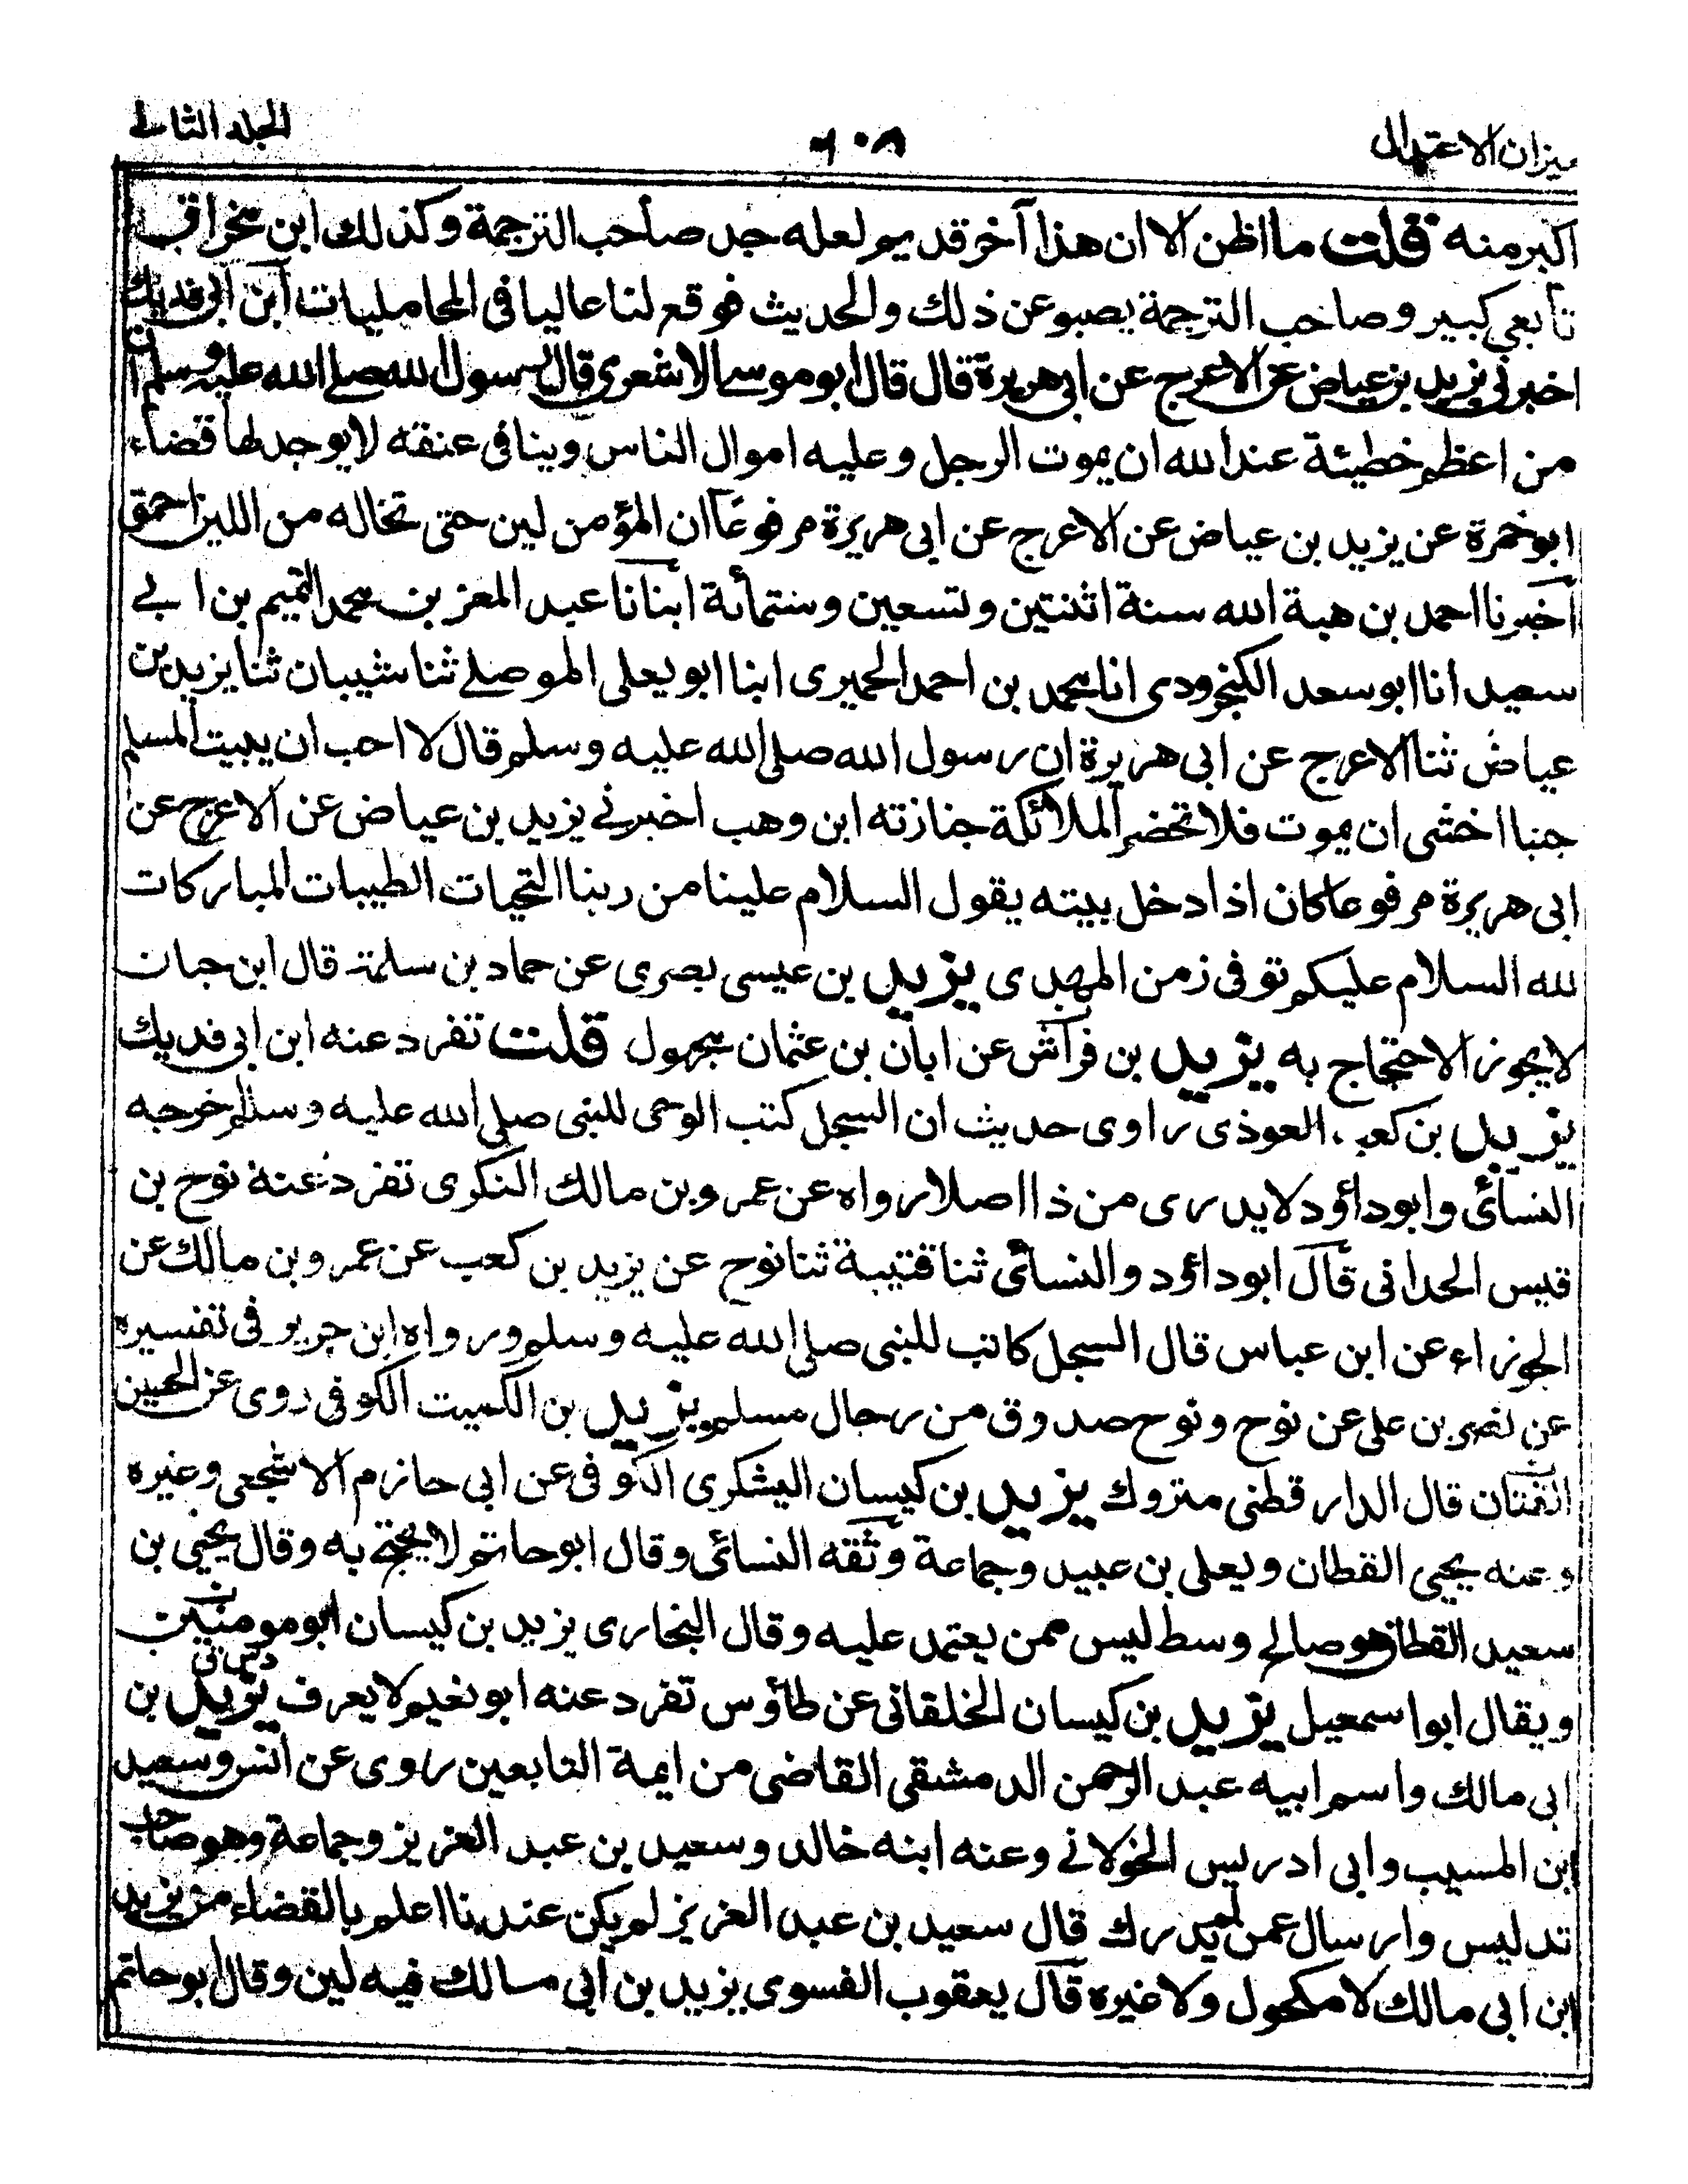 ميزان الاعتدال
٦٠٨
المجلد الثانى
اكبر منه قلت ما اظن الا ان هذا آخر قديم لعله جد صاحب الترجمة وكذلك ابن مخراق
تابعى كبير وصاحب الترجمة يصبو عن ذلك والحديث فوقع لنا عاليا فى المحامليات ابن ابى فديك
اخبرنى يزيد بن عياض عن الاعرج عن ابى هريرة قال قال ابو موسى الاشعرى قال رسول الله صلى الله عليه وسلم ان
من اعظم خطيئة عند الله ان يموت الرجل وعليه اموال الناس دينا فى عنقه لا يوجد لها قضاء
ابو ضمرة عن يزيد بن عياض عن الاعرج عن ابى هريرة مرفوعا ان المؤمن لين حتى تخاله من اللين احمق
اخبرنا احمد بن هبة الله سنة اثنتين وتسعين وستمائة انبانا عبد المعز بن محمد انا تميم بن ابى
سعيد انا ابو سعد الكنجرودى انا محمد بن احمد الحميرى ابنا ابو يعلى الموصلى ثنا شيبان ثنا يزيد بن
عياض ثنا الاعرج عن ابى هريرة ان رسول الله صلى الله عليه وسلم قال لا احب ان يبيت المسلم
جنبا اخشى ان يموت فلا تحضر الملائكة جنازته ابن وهب اخبرنى يزيد بن عياض عن الاعرج عن
ابى هريرة مرفوعا كان اذا دخل بيته يقول السلام علينا من ربنا التحيات الطيبات المباركات
لله السلام عليكم توفى زمن المهدى يزيد بن عيسى بصرى عن حماد بن سلمة قال ابن حبان
لا يجوز الاحتجاج به يزيد بن فراش عن ابان بن عثمان مجهول قلت تفرد عنه ابن ابى فديك
يزيد بن كعب العوذى راوى حديث ان السجل كتب الوحى للنبى صلى الله عليه وسلم خرجه
النسائى وابو داؤد لا يدرى من ذا اصلا رواه عن عمرو بن مالك النكرى تفرد عنه نوح بن
قيس الحدانى قال ابو داؤد والنسائى ثنا قتيبة ثنا نوح عن يزيد بن كعب عن عمرو بن مالك عن
الجوزاء عن ابن عباس قال السجل كاتب للنبى صلى الله عليه وسلم ورواه ابن جرير فى تفسيره
عن نصر بن على عن نوح ونوح صدوق من رجال مسلم يزيد بن الكميت الكوفى روى عن الحسين
قال الدارقطنى متروك يزيد بن كيسان اليشكرى الكوفى عن ابى حازم الاشجعى وغيره
وعنه يحيى القطان ويعلى بن عبيد وجماعة وثقه النسائى وقال ابو حاتم لا يحتج به وقال يحيى بن
سعيد القطان هو صالح وسط ليس ممن يعتمد عليه وقال البخارى يزيد بن كيسان ابو منين
ويقال ابو اسمعيل يزيد بن كيسان الخلقانى عن طاؤس تفرد عنه ابو نعيم لا يعرف يزيد بن
ابى مالك واسم ابيه عبد الرحمن الدمشقى القاضى من ايمة التابعين روى عن انس وسعيد
ابن المسيب وابى ادريس الخولانى وعنه ابنه خالد وسعيد بن عبد العزيز وجماعة وهو صاحب
تدليس وارسال عمن لم يدرك قال سعيد بن عبد العزيز لم يكن عندنا اعلم بالقضاء من يزيد
ابن ابى مالك لا مكحول ولا غيره قال يعقوب الفسوى يزيد بن ابى مالك فيه لين وقال ابو حاتم